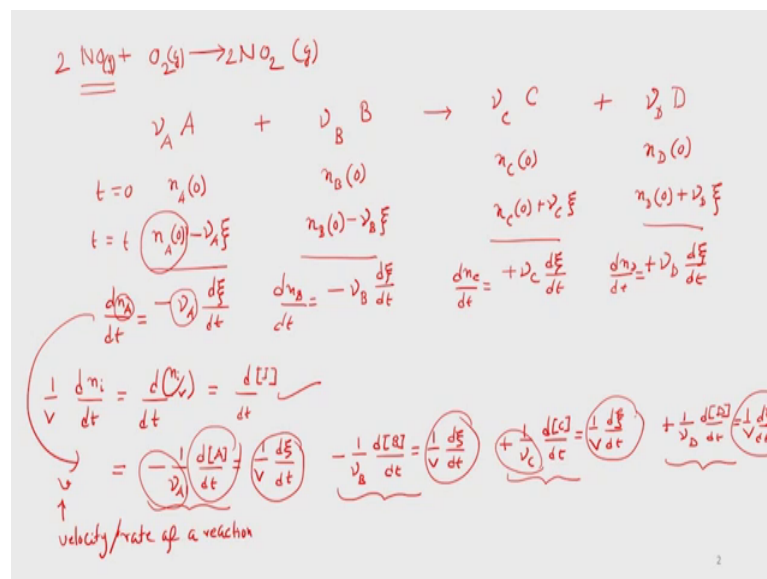 2 NO(g) + O₂(g) → 2NO₂ (g)
ν_A A + ν_B B → ν_C C + ν_D D
t=0 n_A(0) n_B(0) n_C(0) n_D(0)
t=t n_A(0)-ν_Aξ n_B(0)-ν_Bξ n_C(0)+ν_Cξ n_D(0)+ν_Dξ
dn_A/dt = -ν_A dξ/dt dn_B/dt = -ν_B dξ/dt dn_C/dt = +ν_C dξ/dt dn_D/dt = +ν_D dξ/dt
1/V dn_i/dt = d(n_i/V)/dt = d[J]/dt
v = -1/ν_A d[A]/dt = 1/V dξ/dt -1/ν_B d[B]/dt = 1/V dξ/dt +1/ν_C d[C]/dt = 1/V dξ/dt +1/ν_D d[D]/dt = 1/V
velocity/rate of a reaction
2